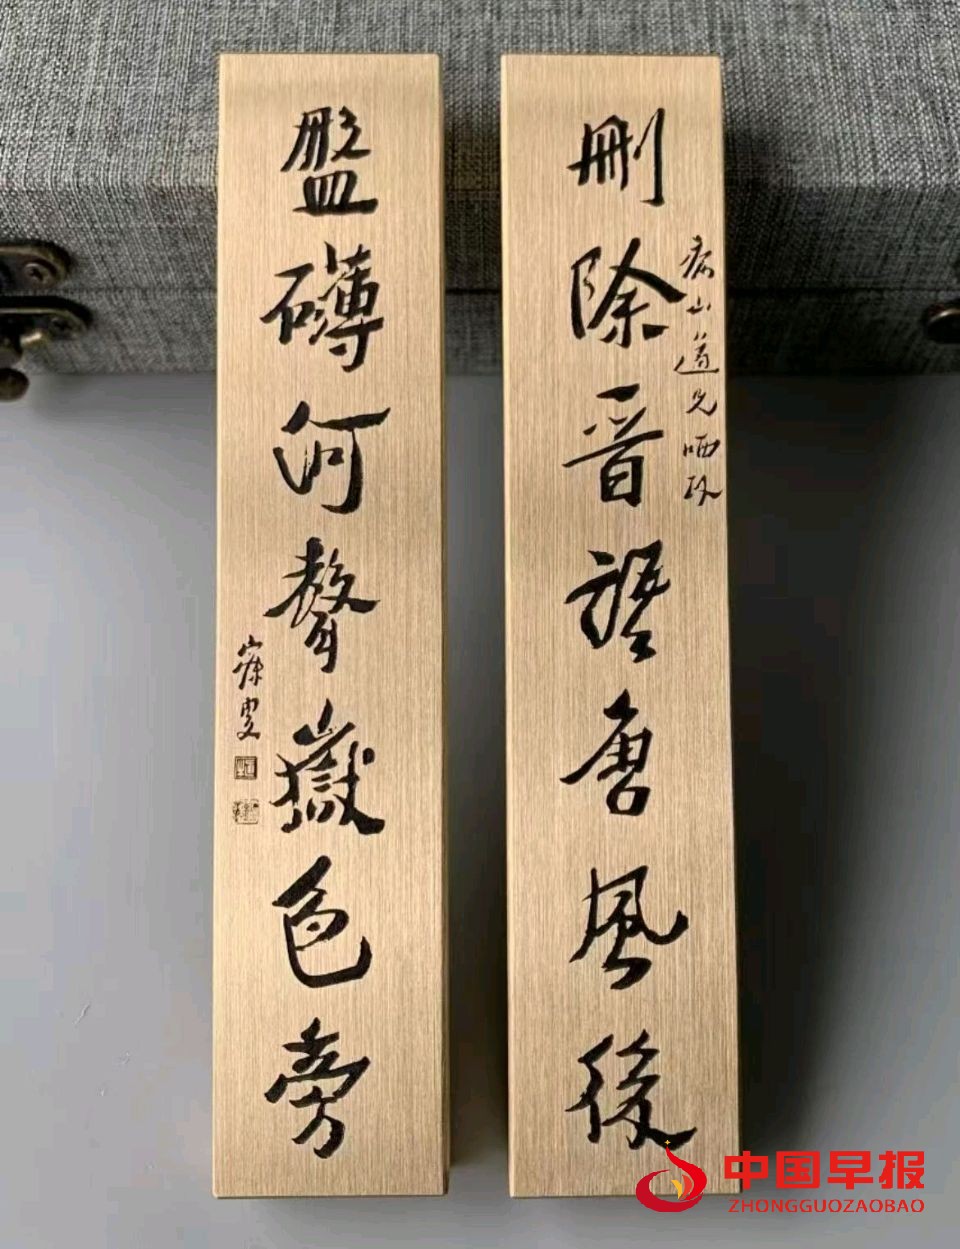 刪除晉語唐風後
病山道兄哂政
盤礴河聲嶽色旁
寐叟
中国早报
ZHONGGUOZAOBAO